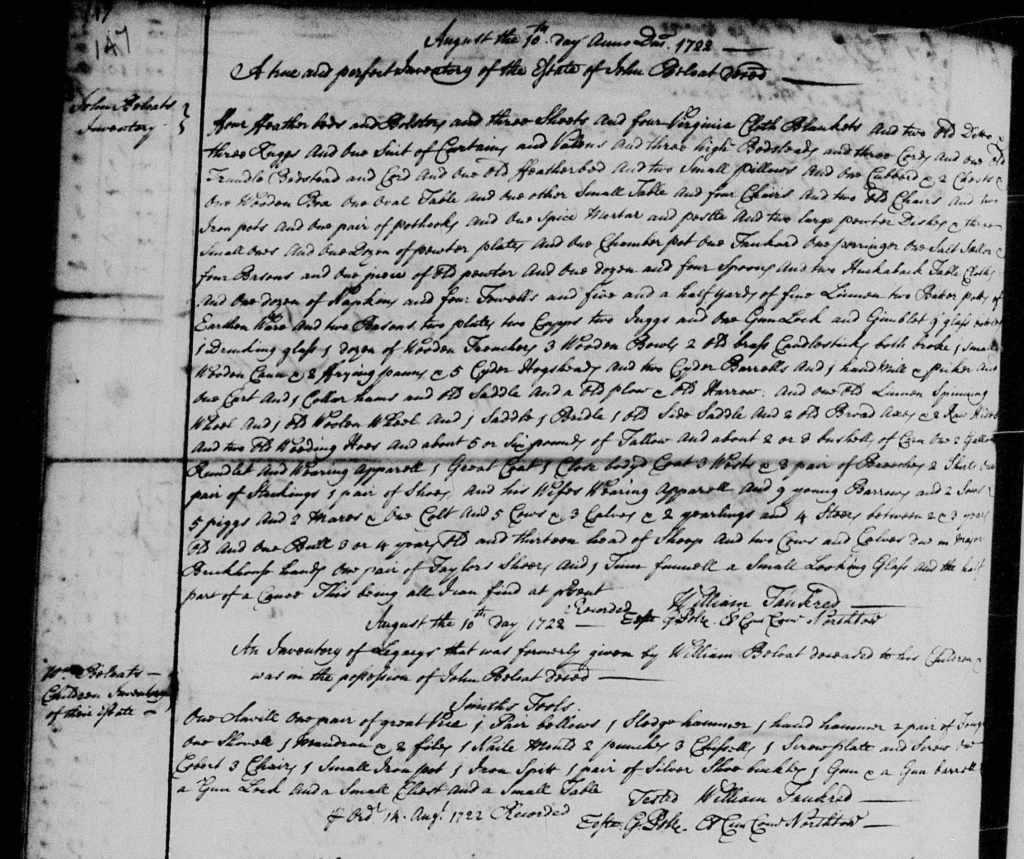 147
August the 10th day Anno Dni. 1722
A true and perfect Inventory of the Estate of John Beloat decsd
John Beloats
Inventory
ffour ffeather beds and Bolsters and three Sheets and four Virginia Cloth Blankets And two old Ditto
three Ruggs And One Suit of Curtains and Valens And three high Bedsteads and three Cords And one old
Trundle Bedstead and Cord And One old ffeatherbed And two Small pillows And One Cubbord & 2 Chests &
One Wooden Box One Oval Table And One other Small Table And four Chairs And two old Chairs And two
Iron pots And One pair of pothooks And One Spice Mortar and pestle And two large pewter Dishes & three
Small ones And One Dozen of pewter plates And One Chamber pot One Tankard One porringer One Salt Seller &
four Basons and One piece of old pewter And One dozen and four Spoons And two Huckaback Table Cloths
And One dozen of Napkins and four Towells and five and a half yards of fine Linnen two Baker pots of
Earthen Ware And two Basons two plates two Cupps two Juggs and One Gun Lock and Gimblet glass
1 Drinking glass 1 dozen of Wooden Trenchers 3 Wooden Bowls 2 old brass Candlesticks both broke 1 Small
Wooden Cann & 2 ffrying panns & 5 Cyder Hogsheads and two Cyder Barrells And 1 hand Mill & and
One Cart And 1 Collar hams and old Saddle And a old plow & old Harrow. And One old Linnen Spinning
Wheel And 1 old Woolen Wheel And 1 Saddle 1 Bridle 1 old Side Saddle And 2 old Broad Axes & 2 Raw Hides
And two old Weeding Hoes And about 5 or Six pounds of Tallow And about 2 or 3 bushells of Corn One 2 Gallon
Rundlet And Wearing Apparell 1 Great Coat 1 Close body'd Coat 3 Wests & 3 pair of Breeches 2 Shirts One
pair of Stockings 1 pair of Shoes And his Wifes Wearing Apparell And 9 young Barrows and 2 Sows &
5 piggs And 2 Mares & One Colt And 5 Cows & 3 Calves & 2 yearlings and 4 Steers between 2 & 3 years
old And One Bull 3 or 4 years old and thirteen head of Sheep And two Cows and Calves due in Major
hands One pair of Taylors Sheers And 1 Tinn funnell a Small Looking Glass and the half
part of a Canoe This being all I can find at present
William Tankred
Recorded
Teste G. Cl Cur Com Northton
August the 10th Day 1722
An Inventory of Legacys that was formerly given by William Beloat deceased to his Children &
was in the possession of John Beloat decsd
Wm Beloats
Children Inventory
of their Estate
Smiths Tools.
One Anvill One pair of great Vice 1 Pair bellows 1 Sledge hammer 1 hand hammer 2 pair of Tongs
One Shovell 1 Mandran & 2 files 1 Naile Mould 2 punches 3 Chissells 1 Screwplate and Screw One
3 Chairs 1 Small Iron pot 1 Iron Spitt 1 pair of Silver Shoe buckles 1 Gun & a Gun barrell
a Gun Lock And a Small Chest And a Small Table
Tested William Tankred
Ordr 14. Augt 1722 Recorded
Teste G. Cl Cur Com Northton